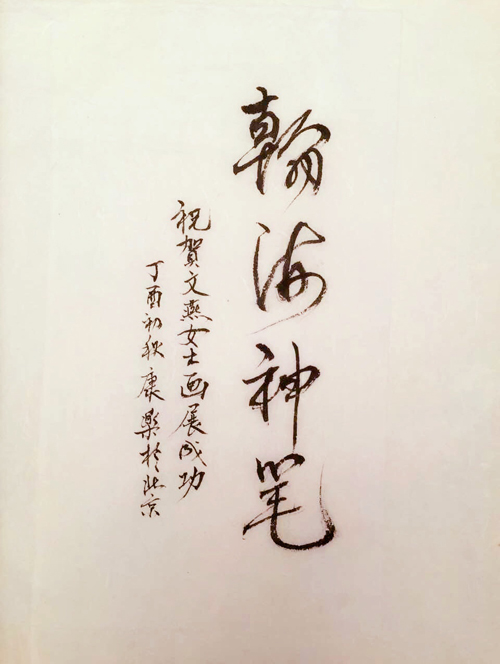 翰海神笔
祝贺文燕女士画展成功
丁酉初秋康乐於北京